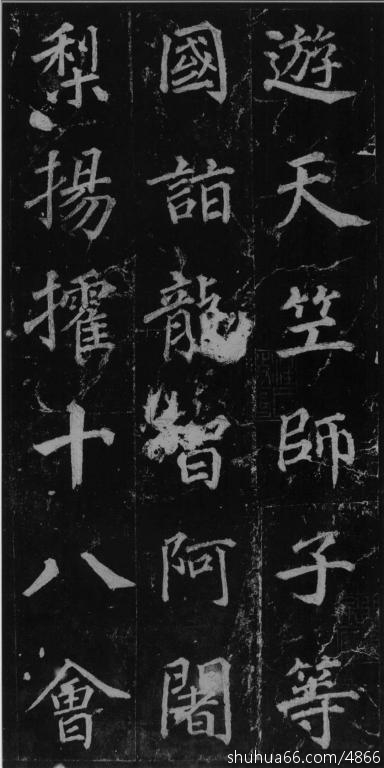 遊天竺師子等
國詣龍智阿闍
梨揚攉十八會
shuhua66.com/4866